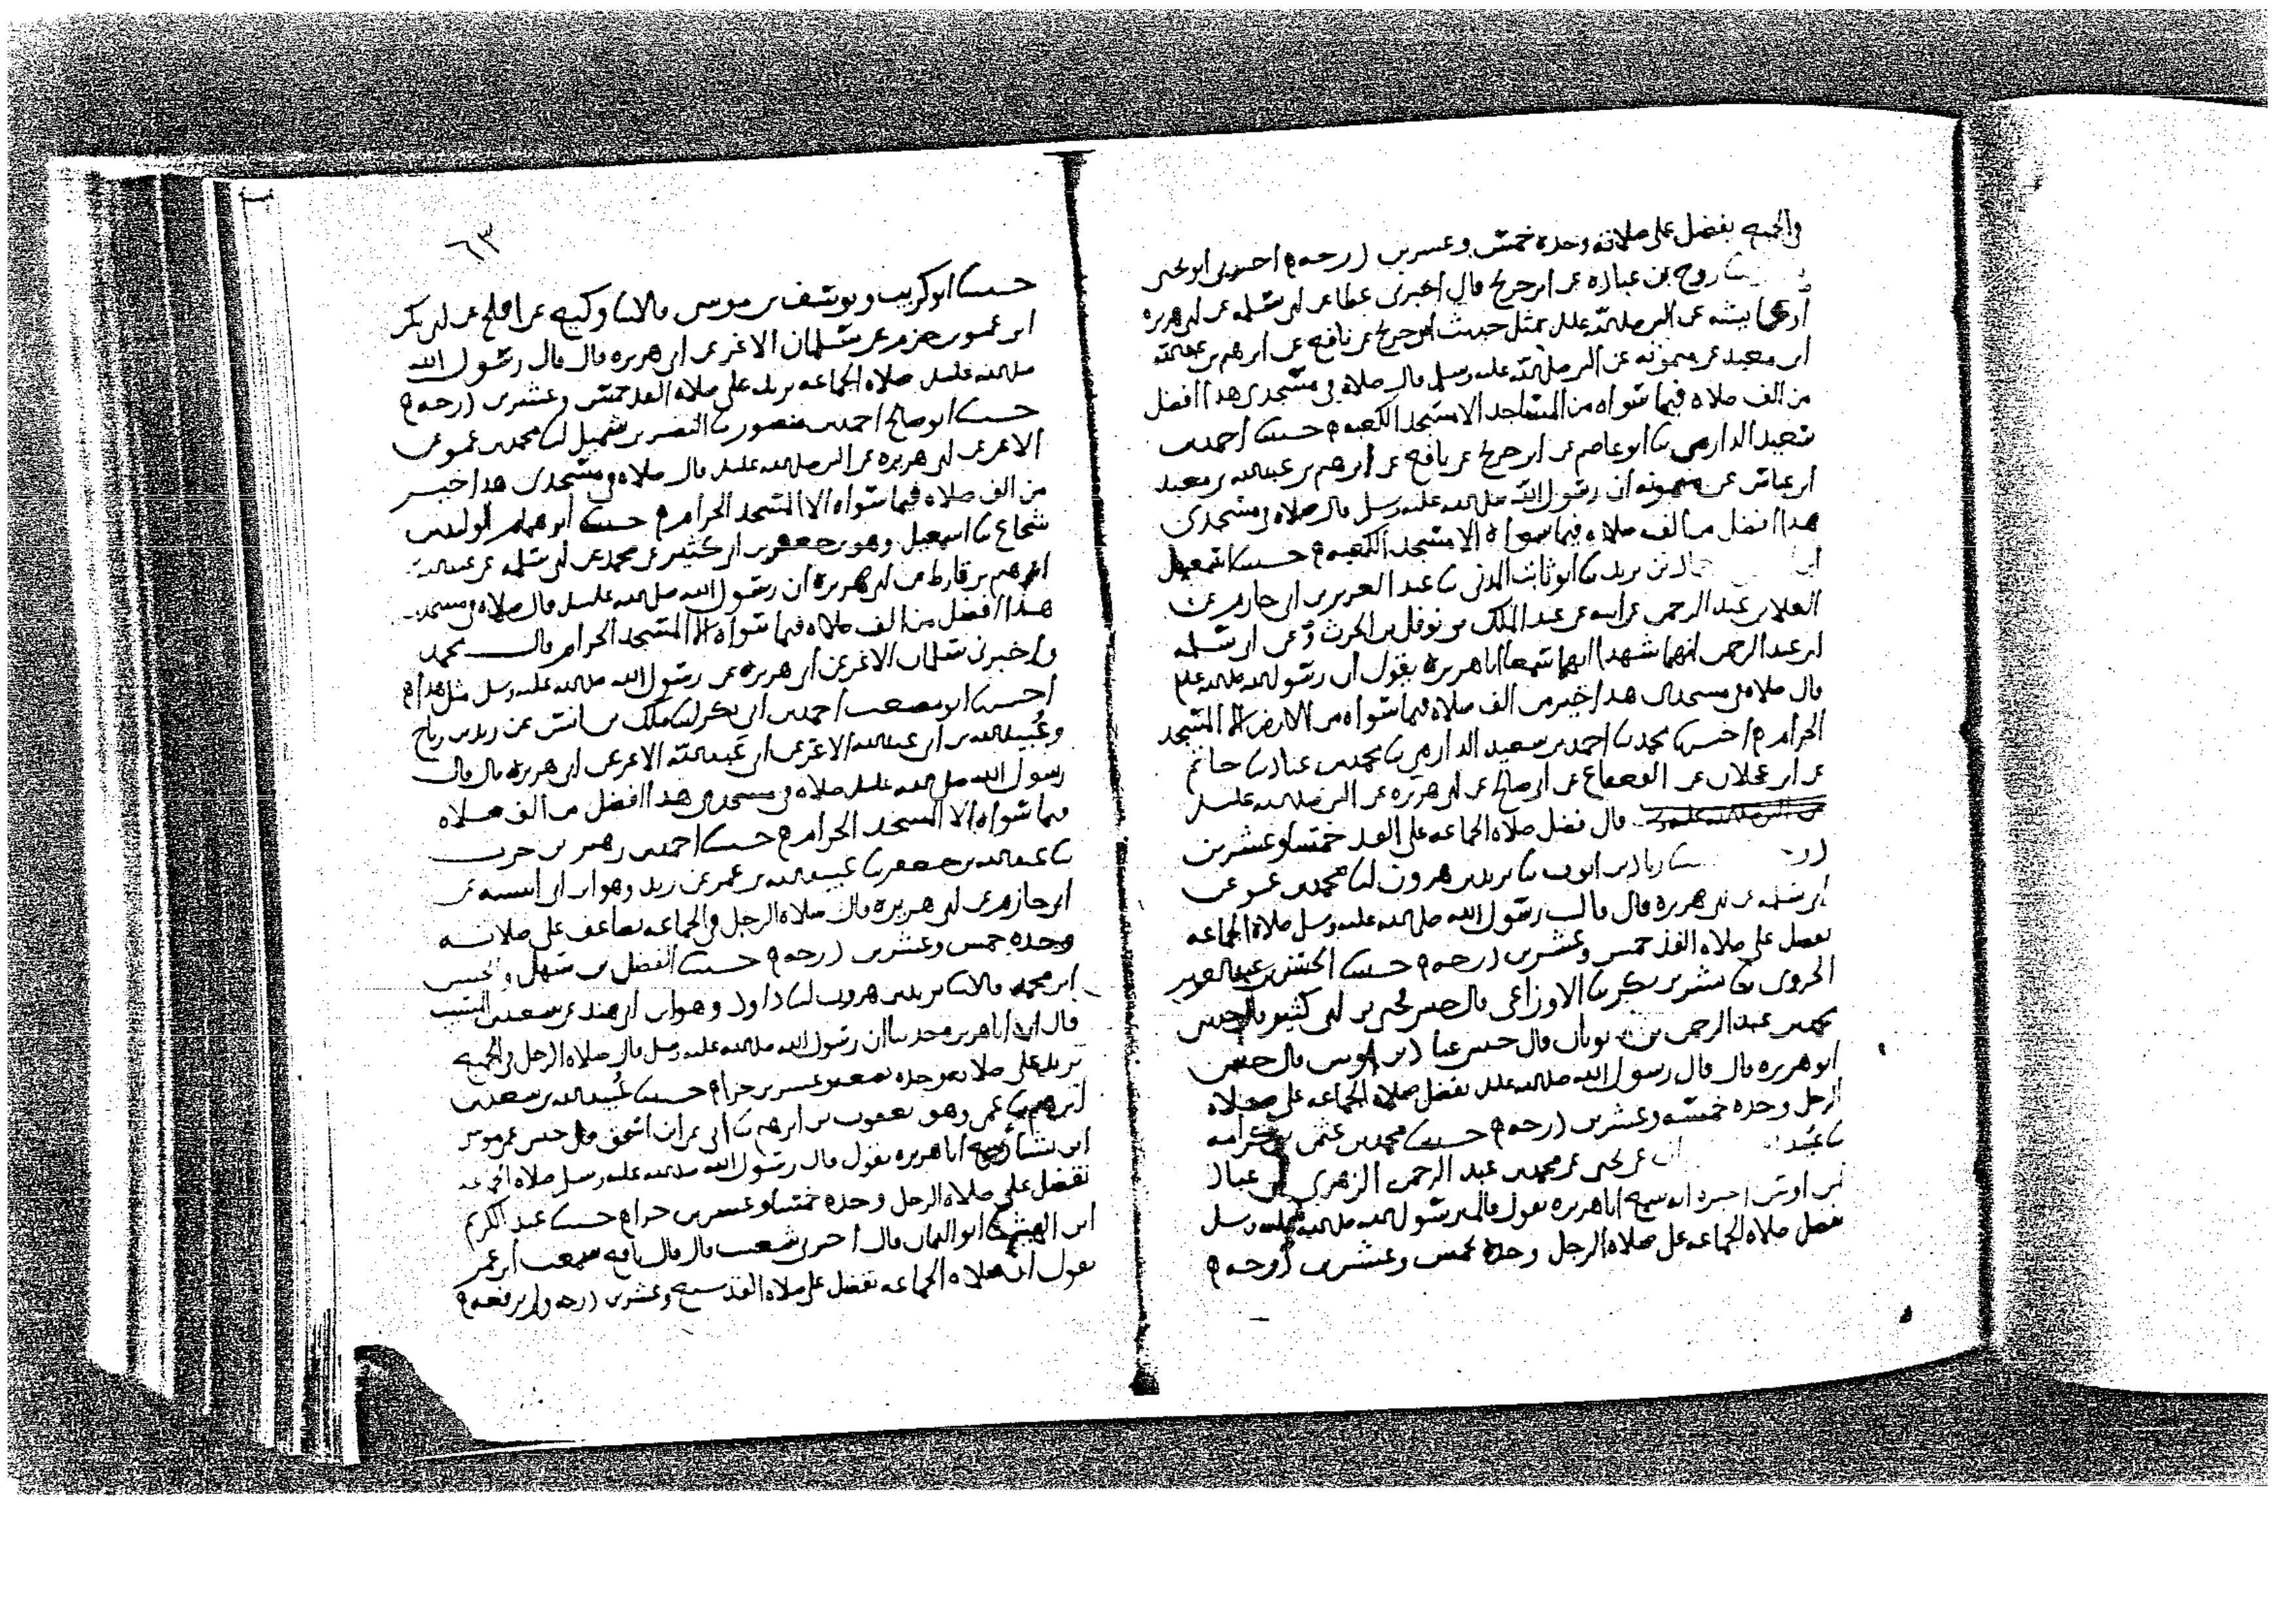 في الجميع بفضل على صلاته وحده خمس وعشرين درجه
روح بن عباده عن ابن جريج قال اخبرني عطا عن ابي سلمه عن ابي هريره
عن النبي صلى الله عليه بمثل حديث ابن جريج عن نافع عن ابرهيم بن عبدالله
ابن معبد عن ميمونه عن النبي صلى الله عليه وسلم قال صلاه في مسجدي هذا افضل
من الف صلاه فيما سواه من المساجد الا مسجد الكعبه حدثنا احمد بن
سعيد الدارمي نا ابو عاصم عن ابن جريج عن نافع عن ابرهيم بن عبدالله بن معبد
ابن عباس عن ميمونه ان رسول الله صلى الله عليه وسلم قال صلاه في مسجدي
هذا افضل من الف صلاه فيما سواه الا مسجد الكعبه حدثنا اسمعيل
بن يزيد نا ابو ثابت المدني نا عبد العزيز بن ابي حازم عن
العلا بن عبد الرحمن عن ابيه عن عبد الملك بن نوفل بن الحرث وعن ابي سلمه
ابن عبد الرحمن انهما شهدا انهما سمعا ابا هريره يقول ان رسول الله صلى الله عليه
قال صلاه في مسجدي هذا خير من الف صلاه فيما سواه من الارض الا المسجد
الحرام محمد نا احمد بن سعيد الدارمي نا محمد بن عباد نا حاتم
عن ابن عجلان عن القعقاع عن ابي صالح عن ابي هريره عن النبي صلى الله عليه
قال فضل صلاه الجماعه على الفذ خمسا وعشرين
زياد بن ايوب نا يزيد بن هرون انا محمد بن عمرو عن
ابي سلمه عن ابي هريره قال قال رسول الله صلى الله عليه وسلم صلاه الجماعه
تفضل على صلاه الفذ خمس وعشرين درجه حدثنا الحسن بن عبد العزيز
الجروي نا بشر بن بكر نا الاوزاعي قال حدثني يحيى بن ابي كثير قال حدثني
محمد بن عبد الرحمن بن ثوبان قال حدثني عباد بن اوس قال حدثني
ابو هريره قال قال رسول الله صلى الله عليه تفضل صلاه الجماعه على صلاه
الرجل وحده خمسه وعشرين درجه حدثنا محمد بن عثمن بن كرامه
عن يحيى عن محمد بن عبد الرحمن الزهري ان عباد
بن اوس اخبره انه سمع ابا هريره يقول قال رسول الله صلى الله عليه وسلم
تفضل صلاه الجماعه على صلاه الرجل وحده خمس وعشرين درجه
٦٣
حدثنا ابو كريب ويوسف بن موسى قالا نا وكيع عن افلح عن ابي بكر
ابن عمرو بن حزم عن سلمان الاغر عن ابي هريره قال قال رسول الله
صلى الله عليه صلاه الجماعه تزيد على صلاه الفذ خمس وعشرين درجه
حدثنا ابو صالح احمد بن منصور نا النضر بن شميل انا محمد بن عمرو عن
الاغر عن ابي هريره عن النبي صلى الله عليه قال صلاه في مسجدي هذا خير
من الف صلاه فيما سواه الا المسجد الحرام حدثنا ابو همام الوليد بن
شجاع نا اسمعيل وهو بن جعفر بن ابي كثير عن محمد عن ابي سلمه عن عبدالله
ابن ابرهيم بن قارظ عن ابي هريره ان رسول الله صلى الله عليه قال صلاه في مسجدي
هذا افضل من الف صلاه فيما سواه الا المسجد الحرام قال محمد
واخبرني سلمان الاغر عن ابي هريره عن رسول الله صلى الله عليه وسلم مثل هذا
ابو مصعب احمد بن ابي بكر انا ملك بن انس عن زيد بن رباح
وعبيدالله بن ابي عبدالله الاغر عن ابي عبدالله الاغر عن ابي هريره قال قال
رسول الله صلى الله عليه صلاه في مسجدي هذا افضل من الف صلاه
فيما سواه الا المسجد الحرام حدثنا احمد بن زهير بن حرب
نا عبدالله بن جعفر نا عبيدالله بن عمر عن زيد وهو ابن ابي انيسه عن
ابي حازم عن ابي هريره قال صلاه الرجل في الجماعه تضاعف على صلاته
وحده خمس وعشرين درجه حدثنا الفضل بن سهل والحسن
ابن محمد قالا نا يزيد بن هرون انا داود وهو ابن ابي هند عن سعيد بن المسيب
قال ابا هريره حدثنا ان رسول الله صلى الله عليه وسلم قال صلاه الرجل في الجميع
تزيد على صلاته وحده وعشرين حدثنا عبيدالله بن سعد بن
ابرهيم نا عمي وهو يعقوب بن ابرهيم نا ابي عن ابن اسحق قال حدثني عمي موسى
ابن يسار سمع ابا هريره يقول قال رسول الله صلى الله عليه وسلم صلاه الجماعه
تفضل على صلاه الرجل وحده خمسا وعشرين حدثنا عبد الكريم
ابن الهيثم نا ابو اليمان قال اخبرني شعيب قال قال نافع سمعت ابن عمر
يقول ان صلاه الجماعه تفضل على صلاه الفذ سبع وعشرين درجه ولم يرفعه